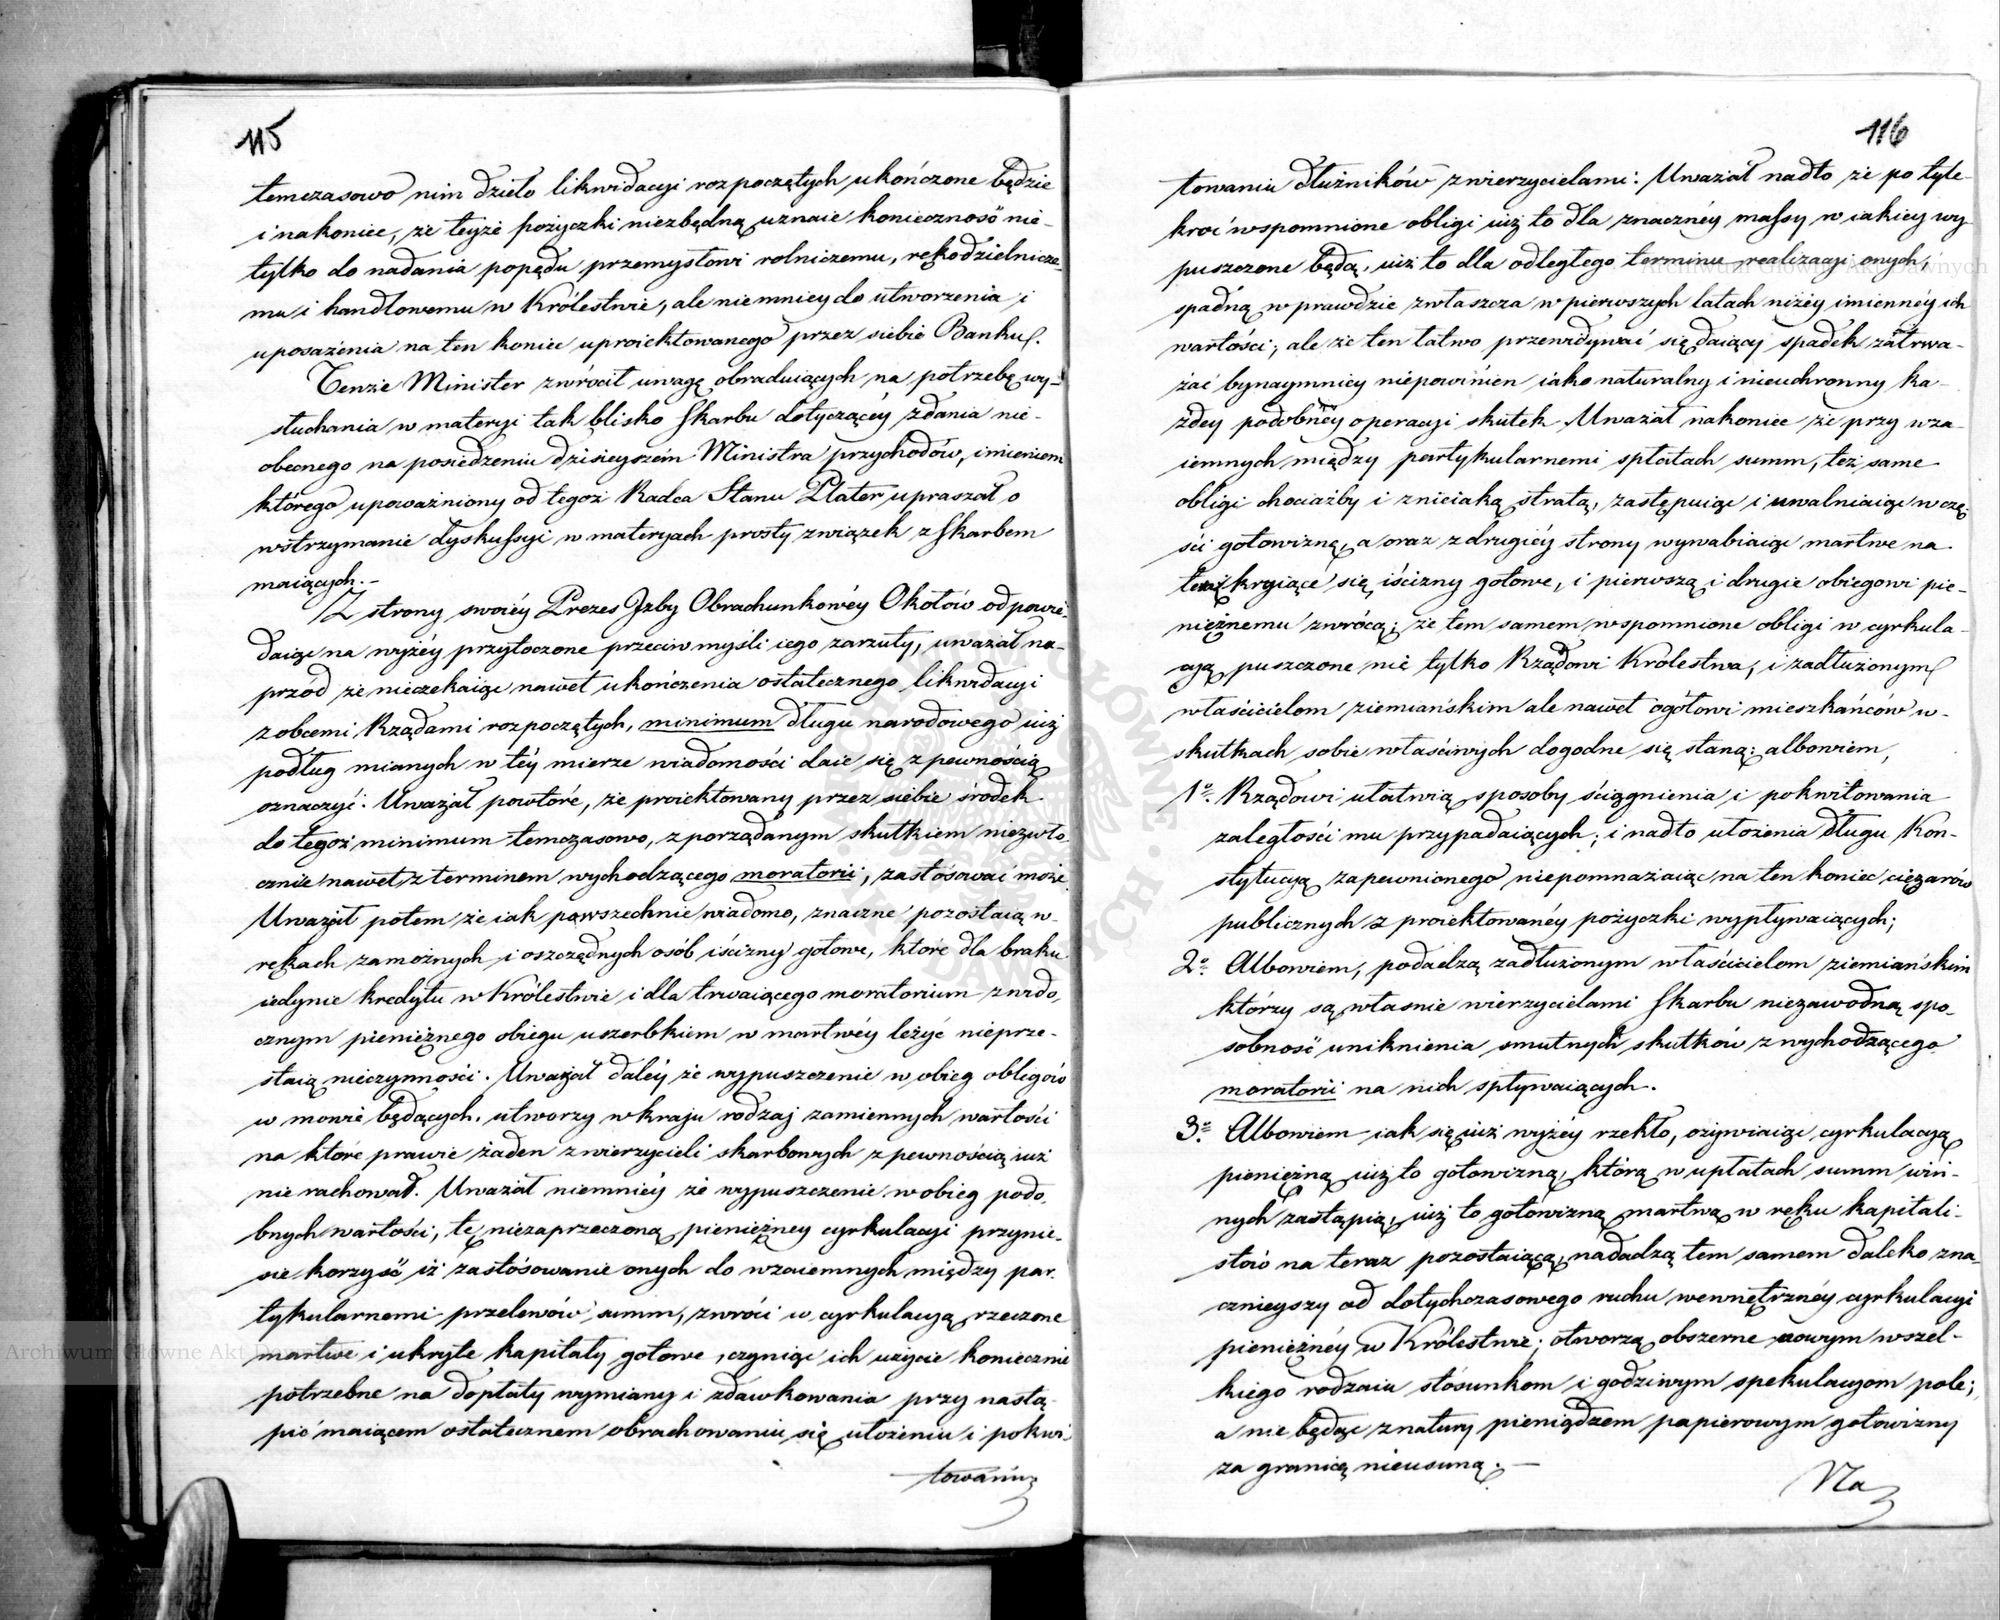 115
temczasowo nim dzieło likwidacyi rozpoczętych ukończone będzie
i nakoniec, że teyże pożyczki niezbędną uznaie konieczność nie-
tylko do nadania popędu przemysłowi rolniczemu, rękodzielnicze-
mu i handlowemu w Królestwie, ale niemniey do utworzenia i
uposażenia na ten koniec uproiektowanego przez siebie Banku.
Tenże Minister zwrócił uwagę obraduiących na potrzebę wy-
słuchania w materyi tak blisko skarbu dotyczącéy zdania nie-
obecnego na posiedzeniu dzisieyszém Ministra przychodów, imieniem
którego upoważniony od tegoż Radca Stanu Plater upraszał o
wstrzymanie dyskussyi w materyach prosty związek z skarbem
maiących.-
Z strony swoiéy Prezes Izby Obrachunkowéy Okołów odpowie-
daiąc na wyżéy przytoczone przeciw myśli iego zarzuty, uważał na-
przód że nieczekaiąc nawet ukończenia ostatecznego likwidacyi
z obcemi Rządami rozpoczętych, minimum długu narodowego iuż
podług mianych w téy mierze wiadomości daie się z pewnością
oznaczyć: Uważał powtóre, że proiektowany przez siebie środek
do tegoż minimum temczasowo, z porządanym skutkiem niezwło-
cznie nawet z terminem wychodzącego moratorii, zastósować może.
Uważał potem że iak powszechnie wiadomo, znaczne pozostaią w-
rękach zamożnych i oszczędnych osób iścizny gotowe, które dla braku
iedynie kredytu w Królestwie i dla trwaiącego moratorium z wido-
cznym pieniężnego obiegu uszerbkiem w martwéy leżyć nieprze-
staią nieczynności. Uważał daléy że wypuszczenie w obieg obligów
w mowie będących, utworzy w kraju rodzaj zamiennych wartości
na które prawie żaden z wierzycieli skarbowych z pewnością iuż
nie rachował. Uważał niemniéy że wypuszczenie w obieg podo-
bnych wartości, tę niezaprzeczoną pieniężney cyrkulacyi przynie-
sie korzyść iż zastósowanie onych do wzaiemnych między par-
tykularnemi przelewów summ, zwróci w cyrkulacyą rzeczone
martwe i ukryte kapitały gotowe, czyniąc ich użycie koniecznie
potrzebne na dopłaty wymiany i zdawkowania przy nastą-
pić maiącem ostatecznem obrachowaniu się ułożeniu i pokwi-
towaniu
116
towaniu dłużników z wierzycielami: Uważał nadto że po tyle-
kroć wspomnione obligi iuż to dla znacznéy massy w iakiey wy
puszczone będą, iuż to dla odległego terminu realizacyi onych,
spadną wprawdzie zwłaszcza w pierwszych latach niżéy imiennéy ich
wartości; ale że ten łatwo przewidywać się daiący spadek zatrwa-
żać bynaymniey niepowinien iako naturalny i nieuchronny ka-
żdey podobnéy operacyi skutek. Uważał nakoniec że przy wza-
iemnych między partykularnemi spłatach summ, też same
obligi chociażby i z nieiaką stratą, zastępuiąc i uwalniaiąc w czę-
ści gotowiznę, a oraz z drugiéy strony wywabiaiąc martwe na
teraz kryiące się iścizny gotowe, i pierwszą i drugie obiegowi pie-
niężnemu zwrócą; że tem samem wspomnione obligi w cyrkula-
cyą puszczone nie tylko Rządowi Królestwa, i zadłużonym
właścicielom ziemiańskim ale nawet ogółowi mieszkańców w-
skutkach sobie właściwych dogodne się staną: albowiem,
1º. Rządowi ułatwią sposoby ściągnienia i pokwitowania
zaległości mu przypadaiących; i nadto ułożenia długu Kon-
stytucyą zapewnionego niepomnażaiąc na ten koniec ciężarów
publicznych z proiektowanéy pożyczki wypływaiących;
2º. Albowiem, podadzą zadłużonym właścicielom ziemiańskim
którzy są właśnie wierzycielami skarbu niezawodną spo-
sobność uniknienia smutnych skutków z wychodzącego
moratorii na nich spływaiących.
3º. Albowiem iak się iuż wyżéy rzekło, ożywiaiąc cyrkulacyą
pieniężną iuż to gotowizną, którą w upłatach summ win-
nych zastąpią, iuż to gotowizną martwą w ręku kapitali-
stów na teraz pozostaiącą, nadadzą tem samem daleko zna-
cznieyszy od dotychczasowego ruchu wewnętrznéy cyrkulacyi
pieniężnéy w Królestwie; otworzą obszerne nowym wszel-
kiego rodzaiu stósunkom i godziwym spekulacyom pole;
a nie będąc z natury pieniądzem papierowym gotowizny
za granicę nieusuną.-
Na
Archiwum Główne Akt Dawnych